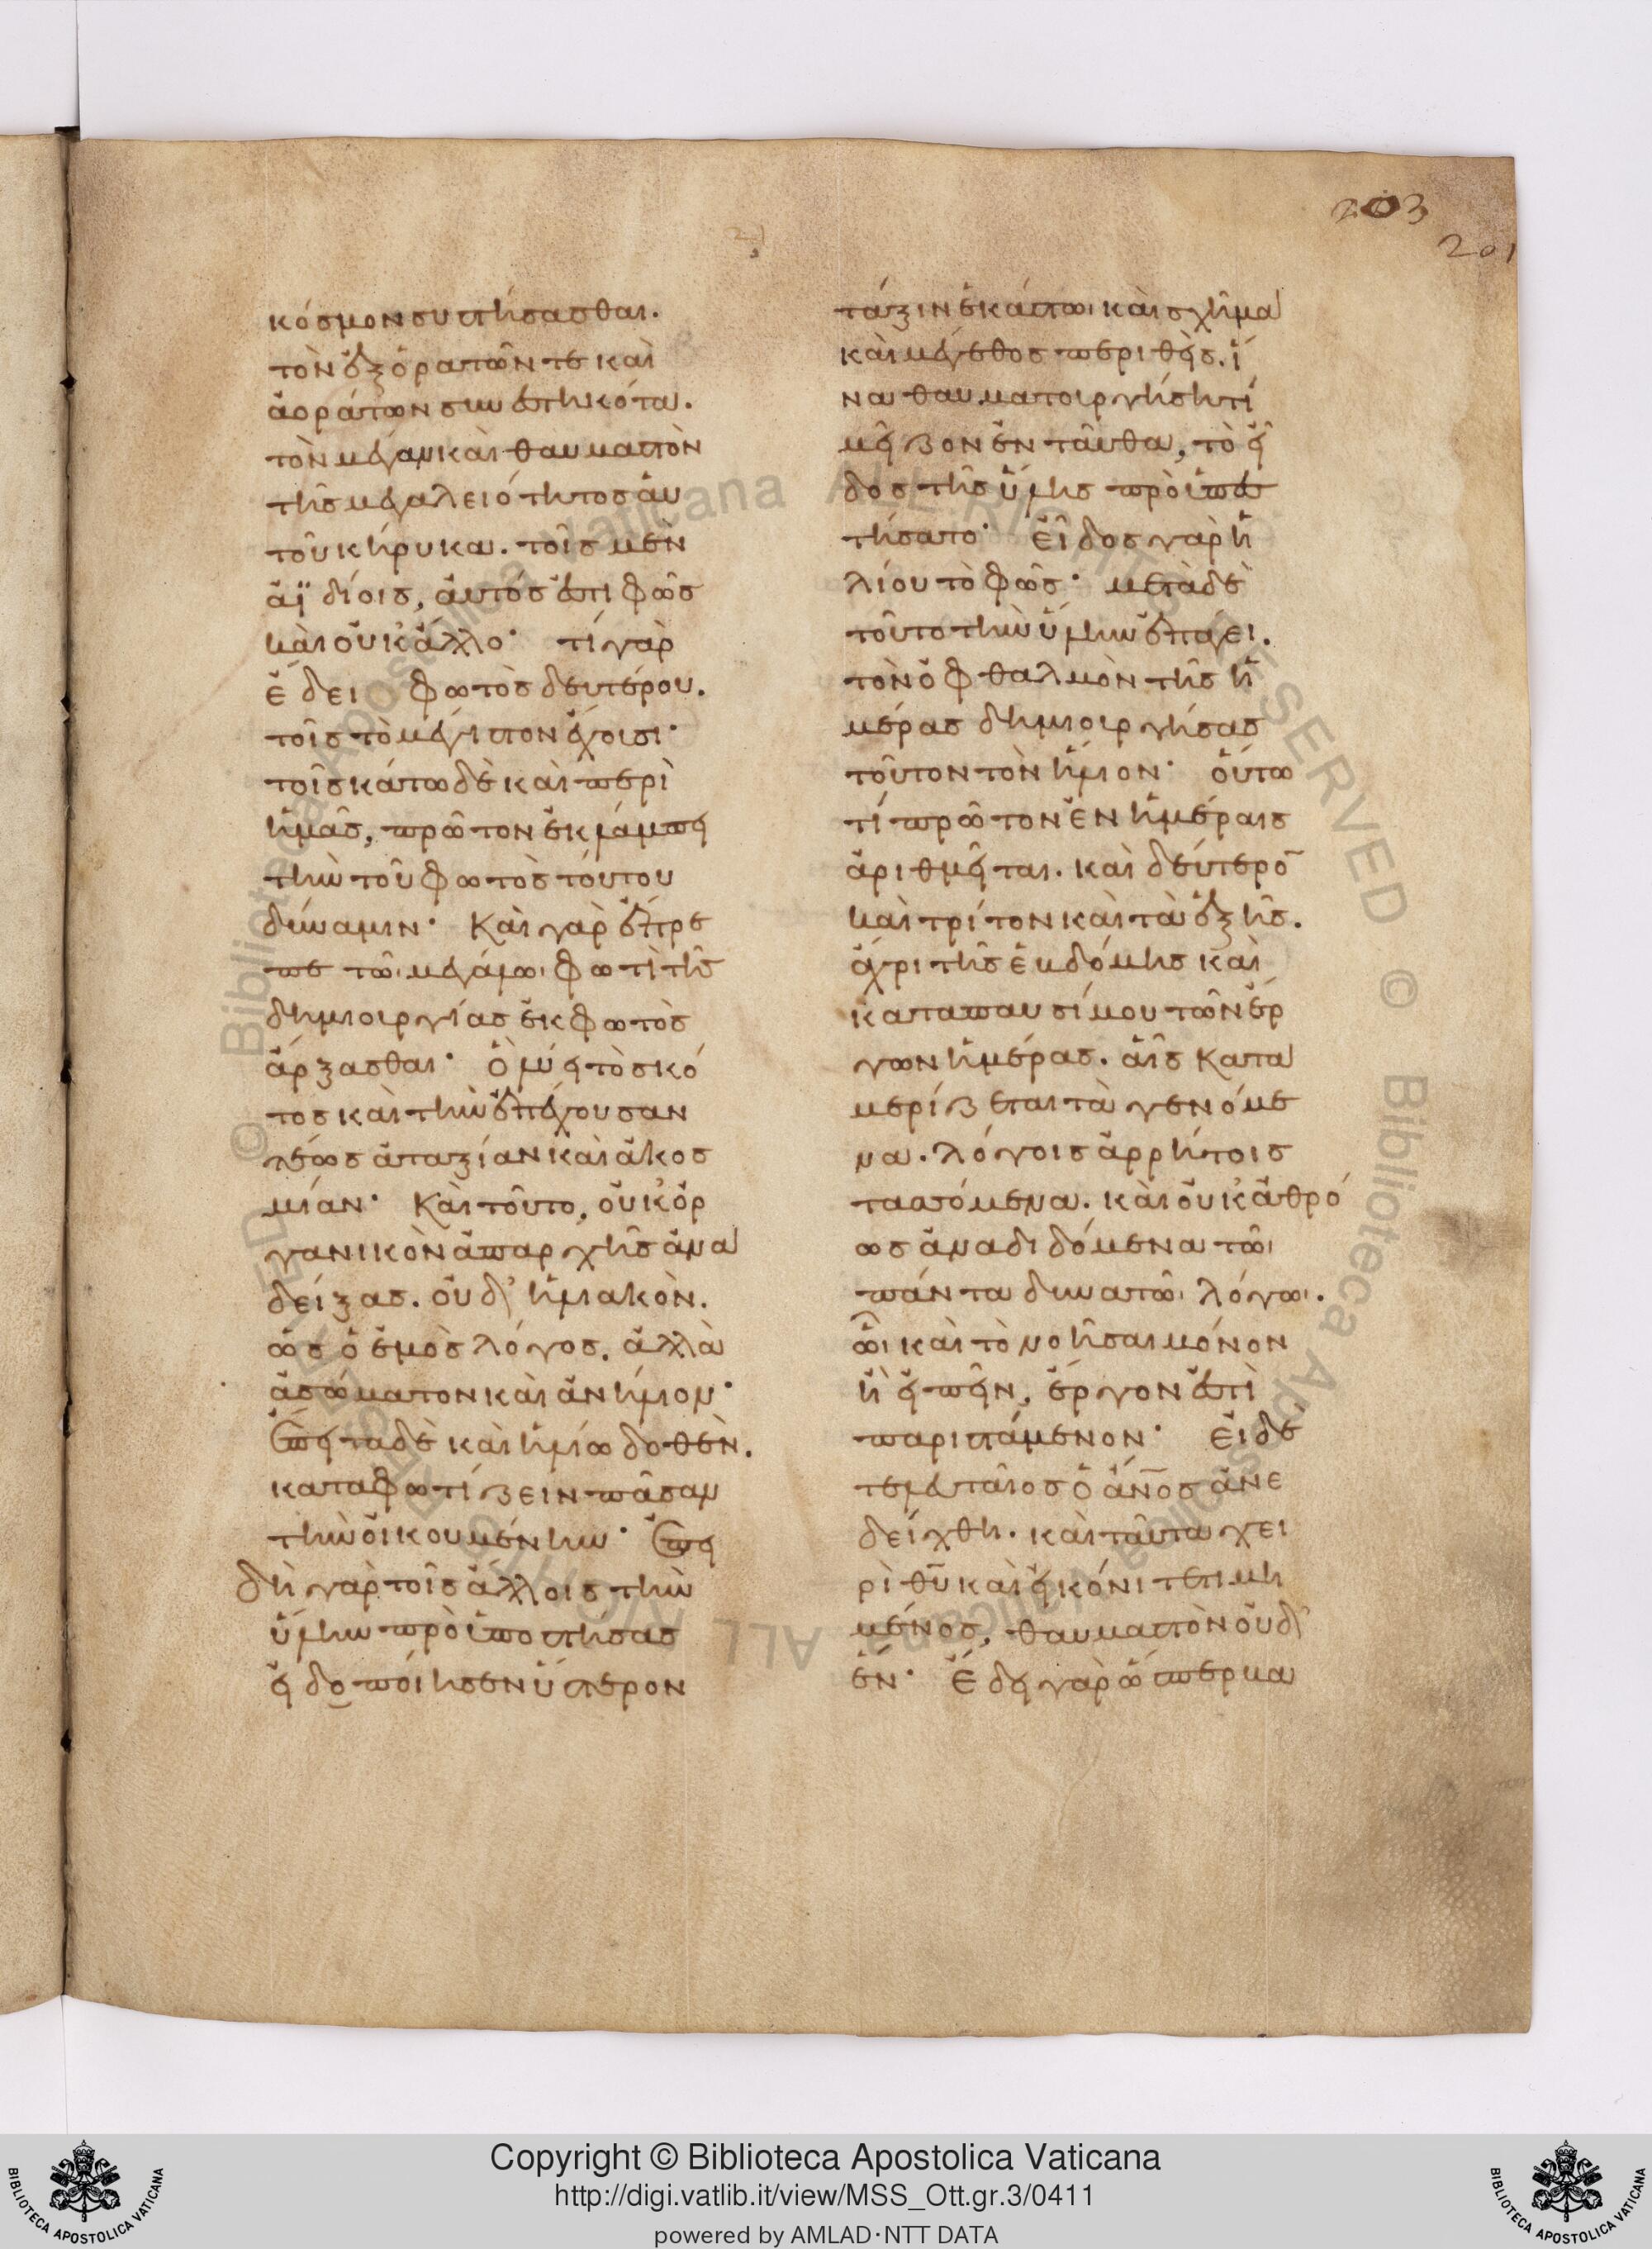 203
201
κόσμον συστήσασθαι.
τὸν ἐξ ὁρατῶν τε καὶ
ἀοράτων συνεστηκότα.
τὸν μέγαν καὶ θαυμαστὸν
τῆς μεγαλειότητος αὐ
τοῦ κήρυκα. τοῖς μὲν
ἀϊδίοις, αὐτός ἐστι φῶς
καὶ οὐκ ἄλλο· τί γὰρ
ἔδει φωτὸς δευτέρου.
τοῖς τὸ μέγιστον ἔχουσι·
τοῖς κάτω δὲ καὶ περὶ
ἡμᾶς, πρῶτον ἐκλάμπει
τὴν τοῦ φωτὸς τούτου
δύναμιν· Καὶ γὰρ ἔπρε
πε τῶι μεγάλωι φωτὶ τῆς
δημιουργίας ἐκ φωτὸς
ἄρξασθαι· ὁ λύει τὸ σκό
τος καὶ τὴν ἐπέχουσαν
τέως ἀταξίαν καὶ ἀκοσ
μίαν· Καὶ τοῦτο, οὐκ ὀρ
γανικὸν ἀπαρχῆς ἀνα
δείξας. οὐδ' ἡλιακὸν.
ὡς ὁ ἐμὸς λόγος. ἀλλὰ
ἀσώματον καὶ ἀνήλιον·
Ἔπειτα δὲ καὶ ἡλίω δοθὲν.
καταφωτίζειν πᾶσαν
τὴν οἰκουμένην· Ἐπει
δὴ γὰρ τοῖς ἄλλοις τὴν
ὕλην προϋποστήσας
εἰδοποίησεν ὕστερον
τάξιν ἑκάστωι καὶ σχῆμα
καὶ μέγεθος περιθεὶς. ἵ
να θαυματουργήση τί
μεῖζον ἐνταῦθα, τὸ εἶ
δος τῆς ὕλης προϋπε
στήσατο· Εἶδος γὰρ ἡ
λίου τὸ φῶς· μετὰ δὲ
τοῦτο τὴν ὕλην ἐπάγει.
τὸν ὀφθαλμὸν τῆς ἡ
μέρας δημιουργήσας
τοῦτον τὸν ἥλιον· οὕτω
τί πρῶτον ἐν ἡμέραις
ἀριθμεῖται. καὶ δεύτερο̄
καὶ τρίτον καὶ τὰ ἐξῆς.
ἄχρι τῆς ἑβδόμης καὶ
καταπαυσίμου τῶν ἔρ
γων ἡμέρας. αἷς κατα
μερίζεται τὰ γενόμε
να. λόγοις ἀρρήτοις
τασσόμενα. καὶ οὐκ ἀθρό
ως ἀναδιδόμενα τῶι
πάντα δυνατῶι λόγωι.
ὧι καὶ τὸ νοῆσαι μόνον
ἢ εἰπεῖν, ἔργον ἐστὶ
παριστάμενον· Εἰ δὲ
τελευταῖος ὁ ἄν̅ος ἀνε
δείχθη. καὶ ταῦτα χει
ρὶ θ̅υ καὶ εἰκόνι τετιμη
μένος, θαυμαστὸν οὐδ'
ἓν· Ἔδει γὰρ ὥσπερ βα
Copyright © Biblioteca Apostolica Vaticana
http://digi.vatlib.it/view/MSS_Ott.gr.3/0411
powered by AMLAD·NTT DATA
BIBLIOTECA APOSTOLICA VATICANA
BIBLIOTECA APOSTOLICA VATICANA